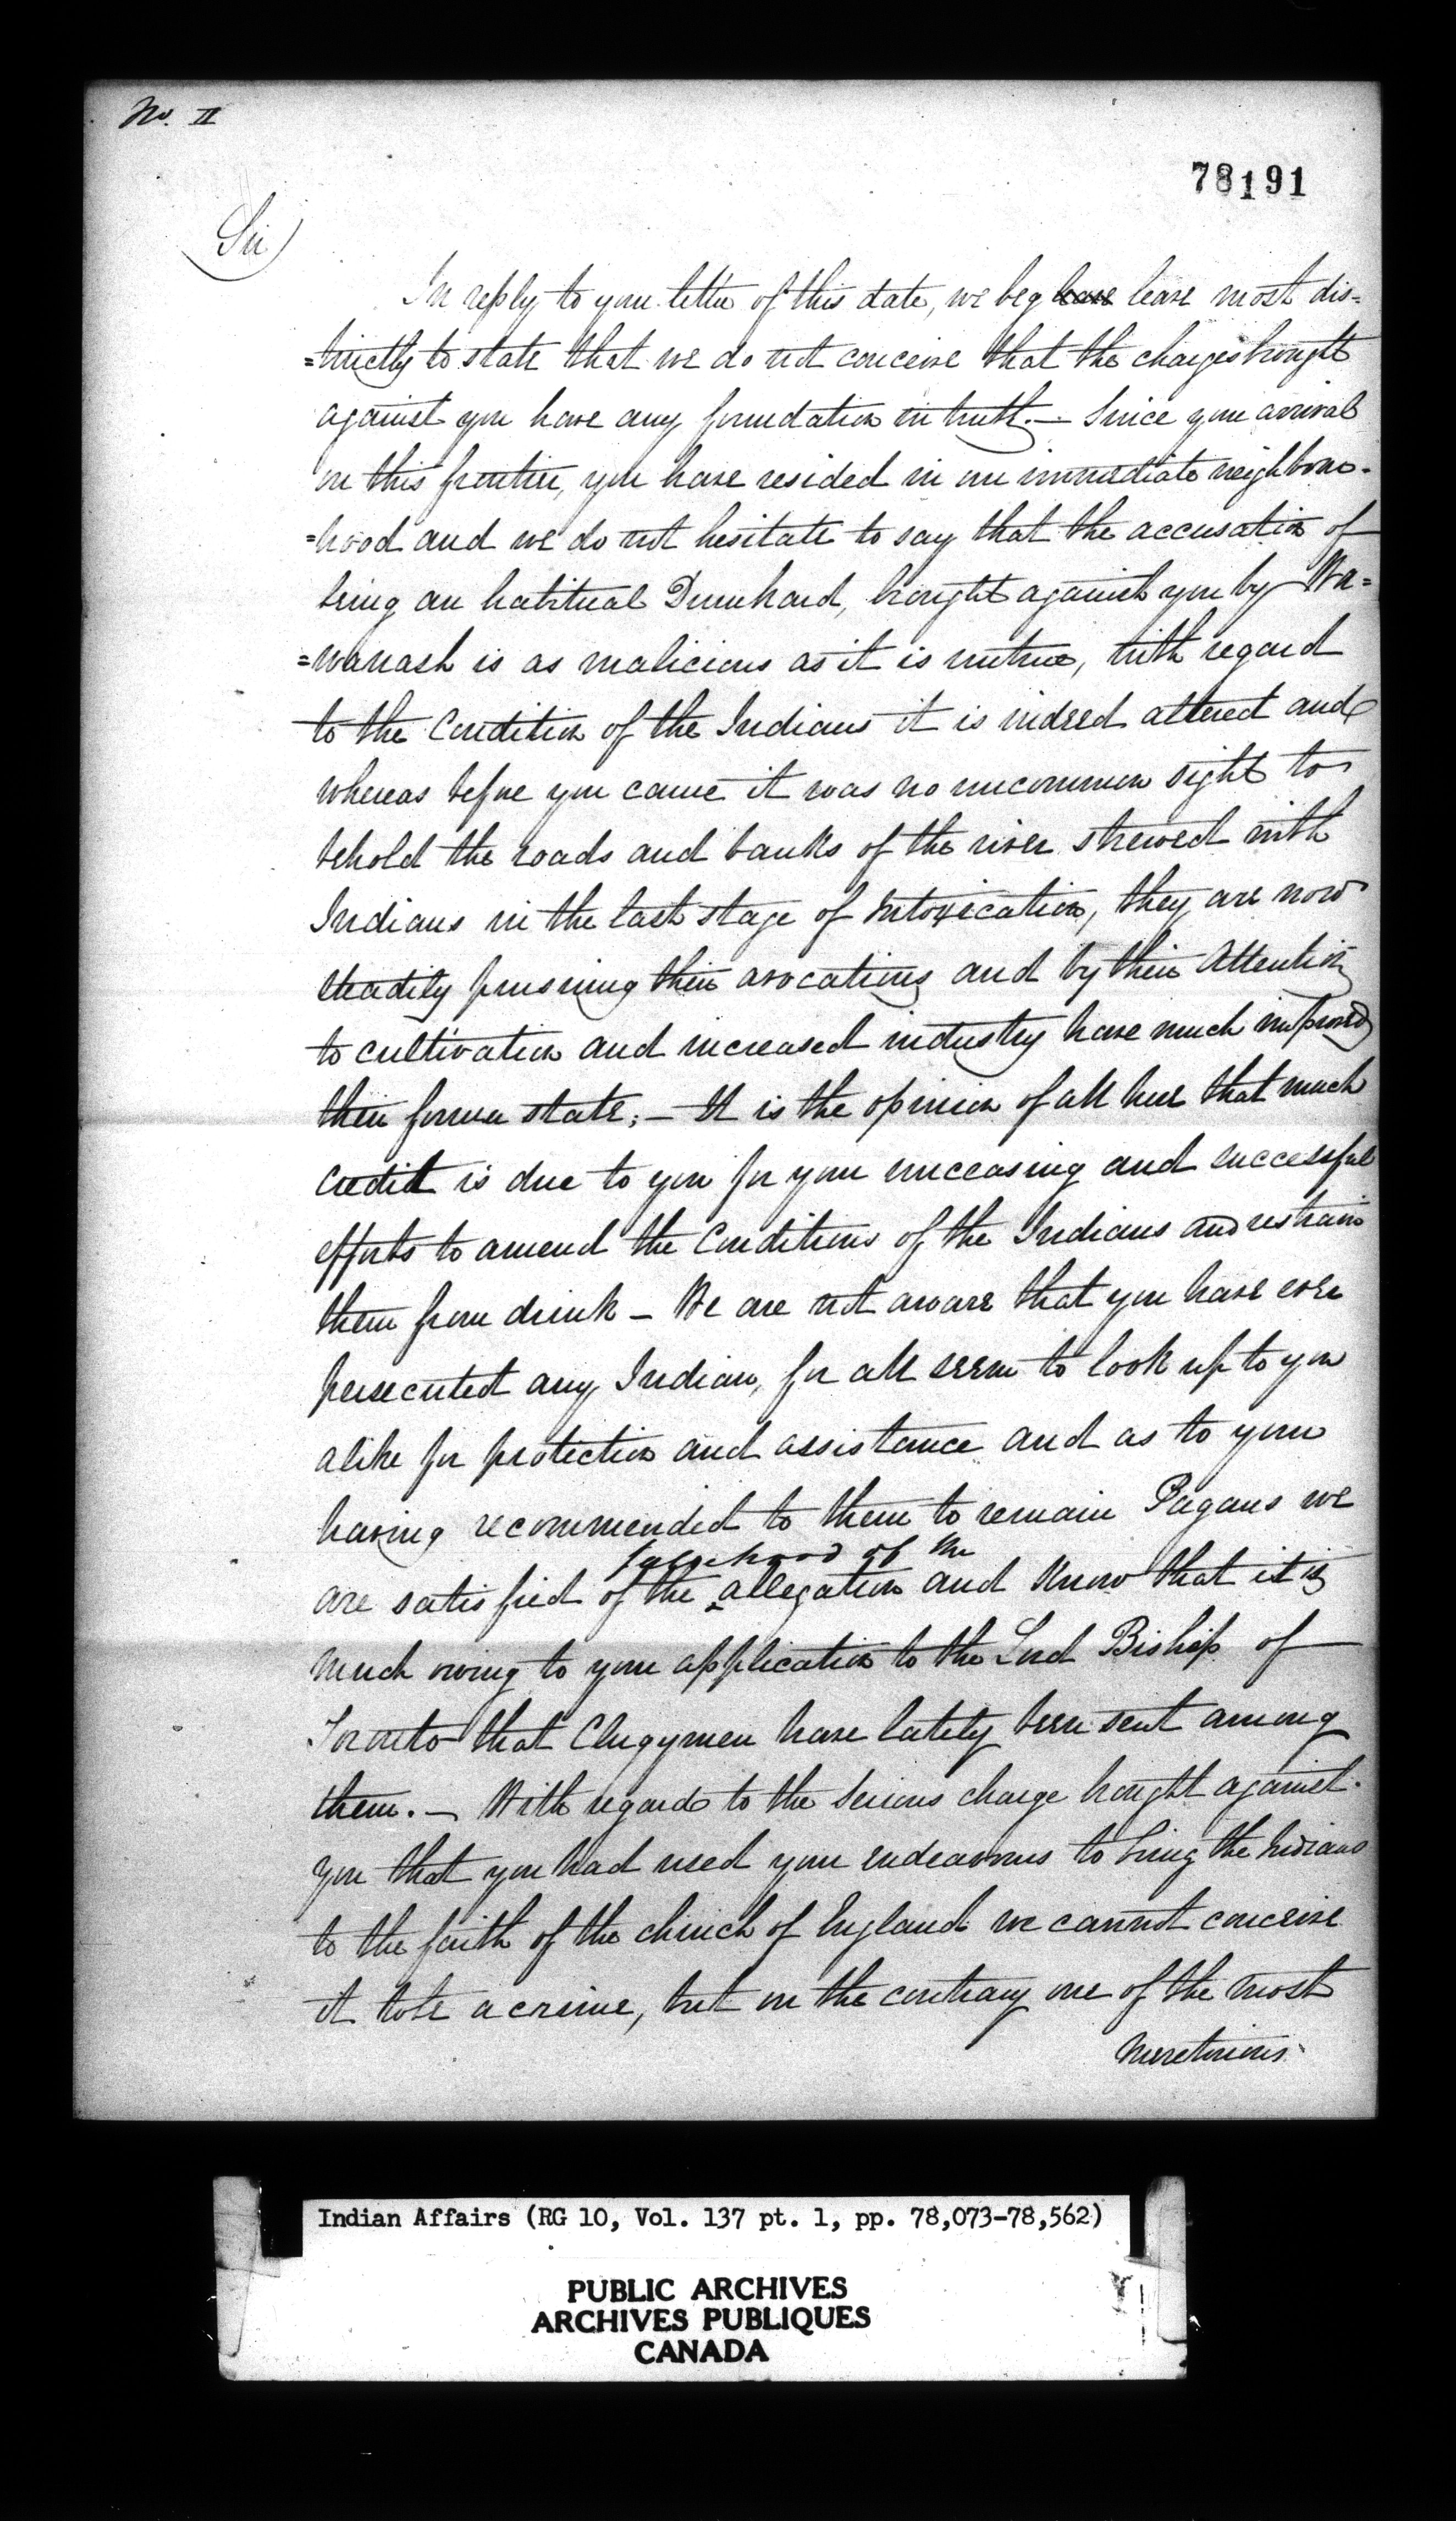 No. II
78191
Sir
In reply to your letter of this date, we beg leave leave most dis=
=tinctly to state that we do not conceive that the charges brought
against you have any foundation in truth. — Since your arrival
on this frontier, you have resided in our immediate neighbour-
=hood and we do not hesitate to say that the accusation of
being an habitual Drunkard, brought against you by Wa=
=wanash is as malicious as it is untrue, with regard
to the Condition of the Indians it is indeed altered and
whereas before you came it was no uncommon sight to
behold the roads and banks of the river strewed with
Indians in the last stage of Intoxication, they are now
steadily pursuing their avocations and by their Attention
to cultivation and increased industry have much improved
their former state; — It is the opinion of all here that much
credit is due to you for your unceasing and successful
efforts to amend the Conditions of the Indians and restrain
them from drink — We are not aware that you have ever
persecuted any Indian, for all seem to look up to you
alike for protection and assistance and as to your
having recommended to them to remain Pagans we
falsehood of the
are satisfied of the allegation and Know that it is
much owing to your application to the Lord Bishop of
Toronto that Clergymen have lately been sent among
them. — With regard to the Serious charge brought against
you that you had used your endeavours to bring the Indians
to the faith of the church of England we cannot conceive
it to be a crime, but on the contrary one of the most
meretorious
Indian Affairs (RG 10, Vol. 137 pt. 1, pp. 78,073-78,562)
PUBLIC ARCHIVES
ARCHIVES PUBLIQUES
CANADA